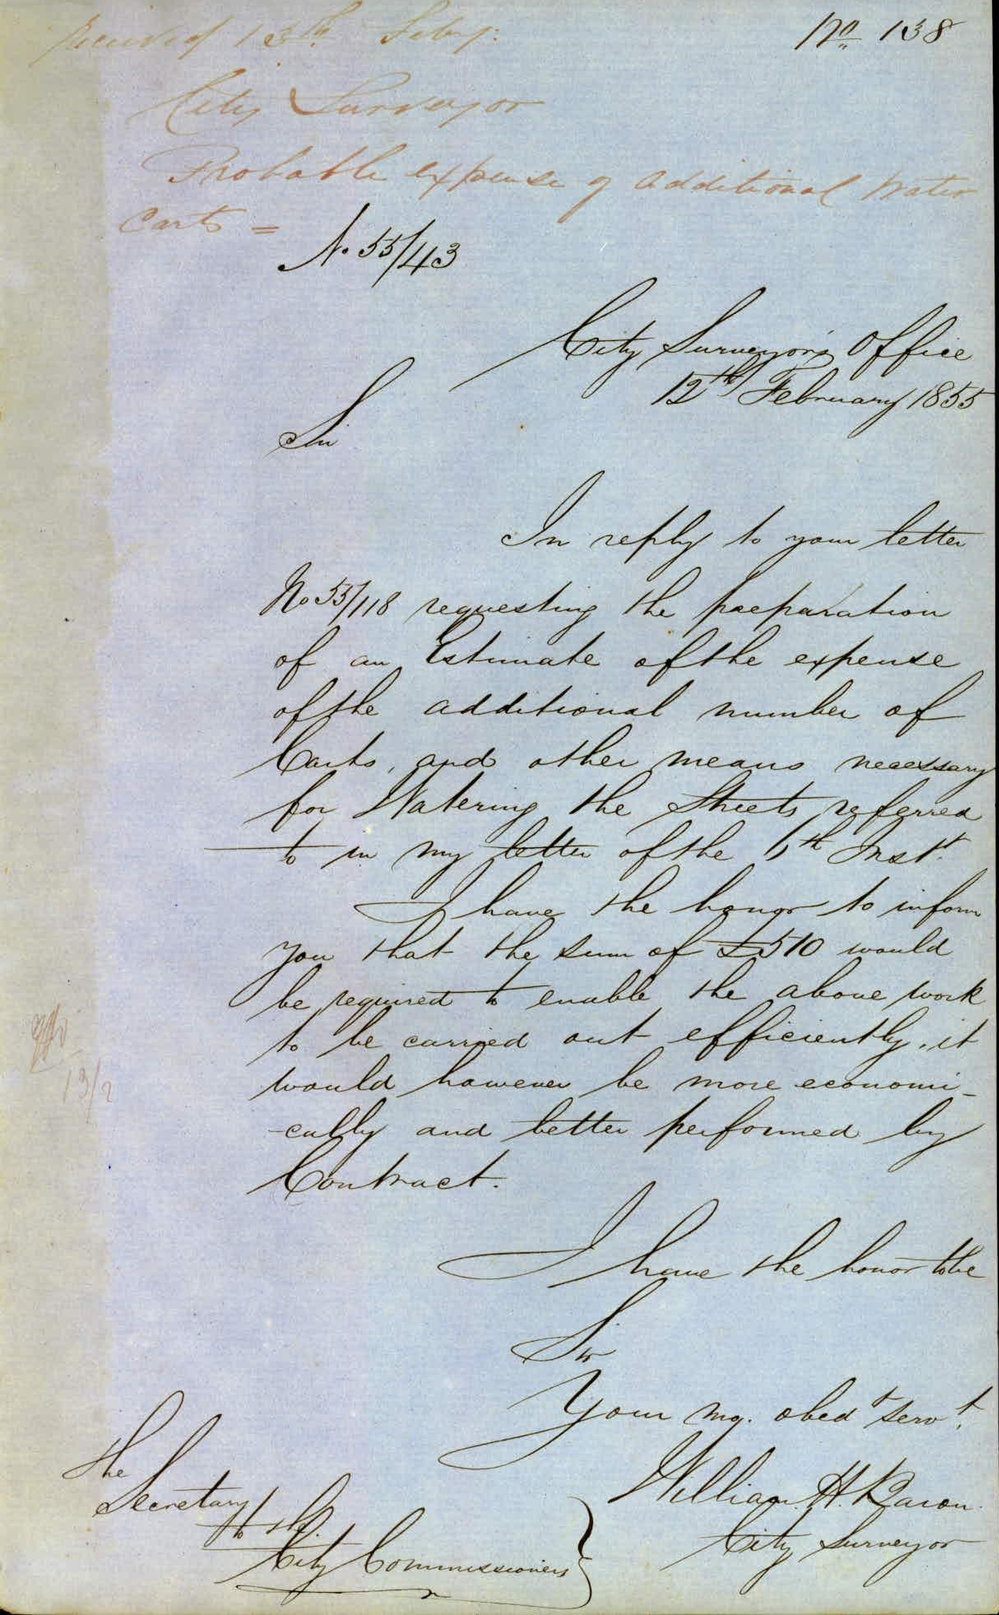 Received 13th Feby:
No 138
City Surveyor
Probable expense of additional Water
Carts =
No 55/43
City Surveyor's Office
12th February 1855
Sir
In reply to your letter
No 55/118 requesting the preparation
of an Estimate of the expense
of the additional number of
Carts, and other means necessary
for Watering the Streets referred
to in my letter of the 6th Inst.
I have the honor to inform
you that the sum of £510 would
be required to enable the above work
to be carried out efficiently, it
would however be more economi-
-cally and better performed by
Contract.
13/2
I have the honor to be
Sir
Your mo. obedt servt.
William H. Baron
City Surveyor
The
Secretary
to the
City Commissioners